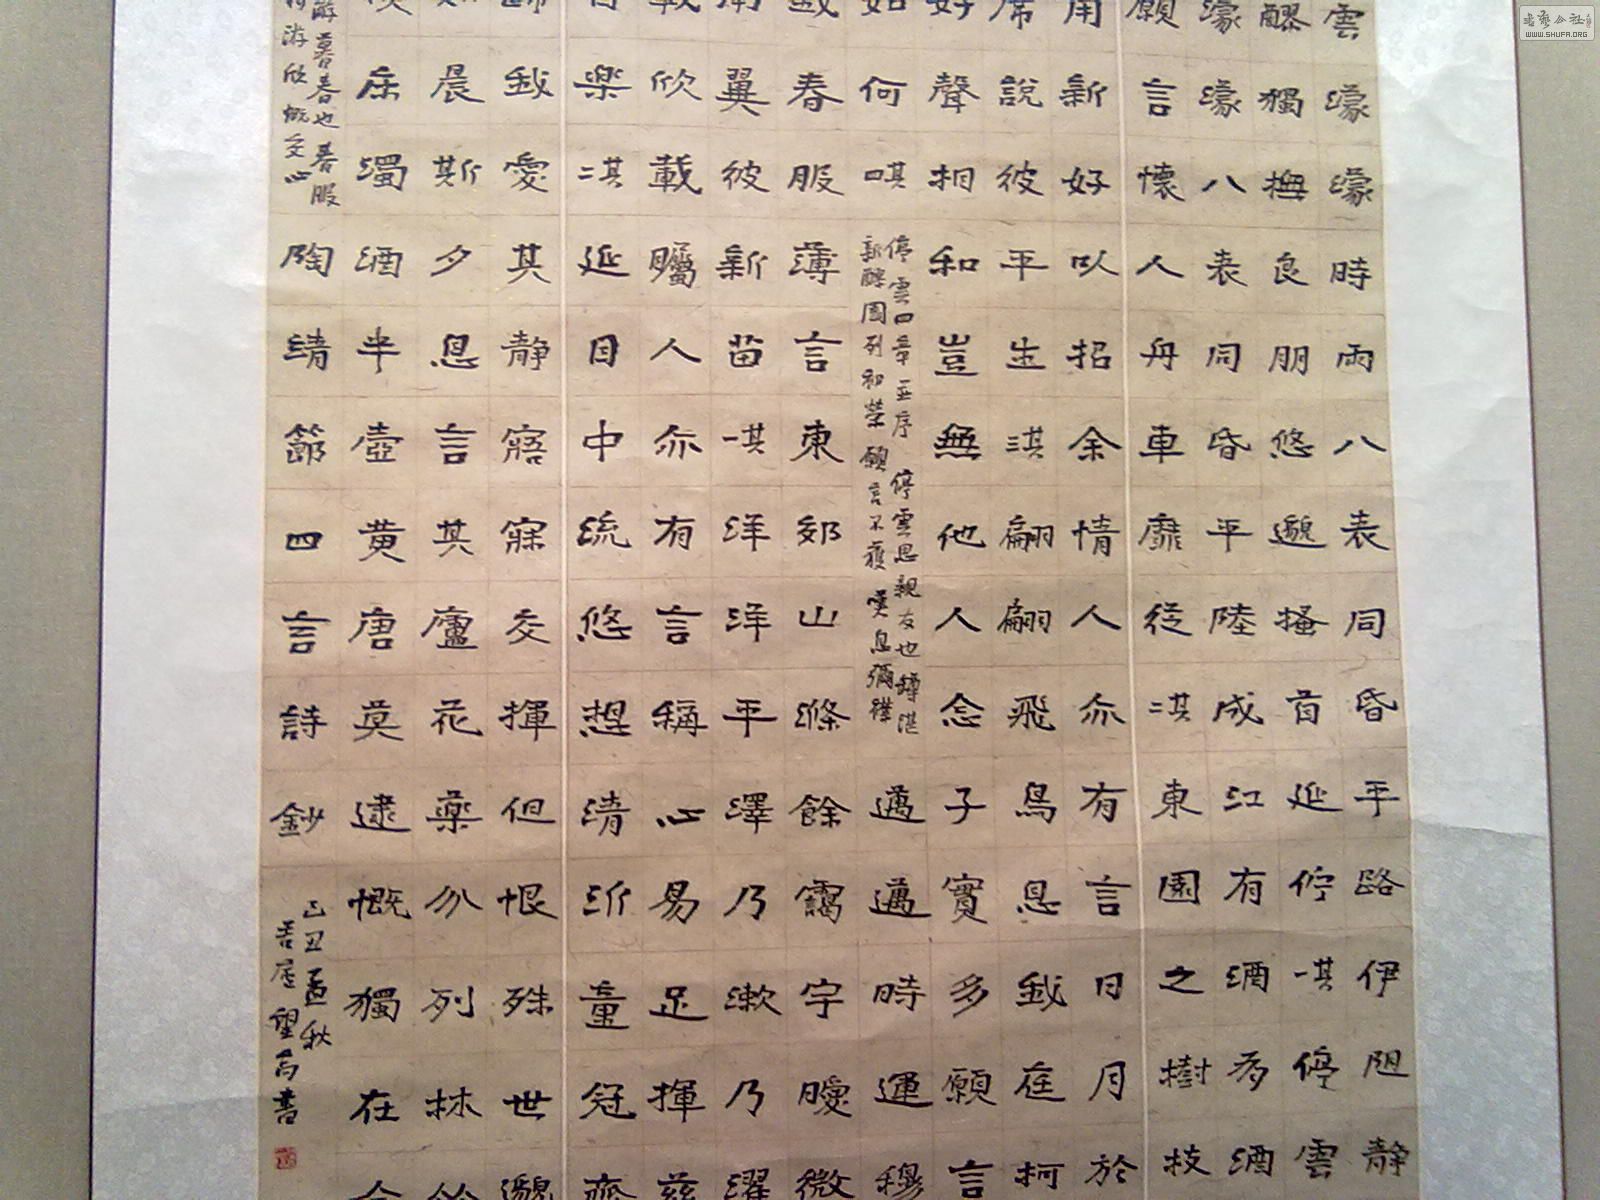 雲濛濛時雨八表同昏平路伊阻靜
醪獨撫良朋悠邈搔首延佇其一停雲
濛濛八表同昏平陸成江有酒有酒
願言懷人舟車靡從其二東園之樹枝
用新好以招余情人亦有言日月於
席說彼平生其三翩翩飛鳥息我庭柯
好聲相和豈無他人念子實多願言
如何其四
停雲四章並序停雲思親友也罇湛
新醪園列初榮願言不獲嘆息彌襟
邁邁時運穆
我春服薄言東郊山滌餘靄宇曖微
南翼彼新苗其一洋洋平澤乃漱乃濯
載欣載矚人亦有言稱心易足揮茲
自樂其二延目中流悠想清沂童冠齊
歸我愛其靜寤寐交揮但恨殊世邈
斯晨斯夕言息其廬花藥分列林竹
橫床濁酒半壺黃唐莫逮慨獨在余
游暮春也春服
游欣慨交心
陶靖節四言詩鈔
己丑孟秋
書
WWW.SHUFA.ORG